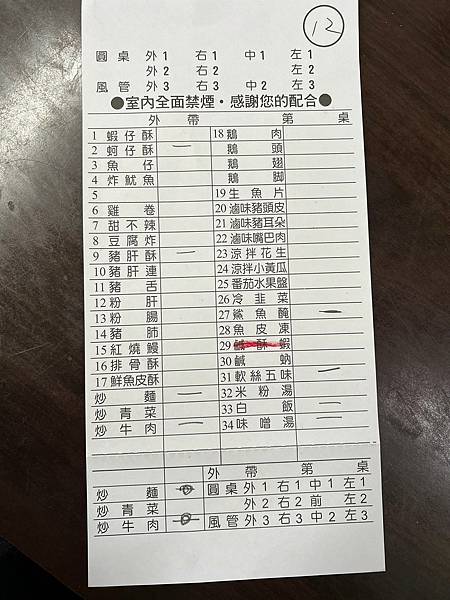 12
圓桌 外1 右1 中1 左1
外2 右2 左2
風管 外3 右3 中2 左3
●室內全面禁煙・感謝您的配合●
外帶 第 桌
1 蝦仔酥 一 18 鵝肉
2 蚵仔酥 一 鵝頭
3 魚仔 鵝翅
4 炸魷魚 鵝脚
5 19 生魚片
6 雞卷 20 滷味豬頭皮
7 甜不辣 21 滷味豬耳朵
8 豆腐炸 22 滷味嘴巴肉
9 豬肝酥 一 23 涼拌花生
10 豬肝連 24 涼拌小黃瓜
11 豬舌 25 番茄水果盤
12 粉肝 26 冷韭菜
13 粉腸 27 鯊魚醃 一
14 豬肺 28 魚皮凍
15 紅燒鰻 29 鹹酥蝦
16 排骨酥 30 鹹蚋
17 鮮魚皮酥 31 軟絲五味 一
炒麵 一 32 米粉湯
炒青菜 33 白飯 二
炒牛肉 一 34 味噌湯
外帶 第 桌
炒麵 圓桌 外1 右1 中1 左1
炒青菜 外2 右2 前 左2
炒牛肉 風管 外3 右3 中2 左3